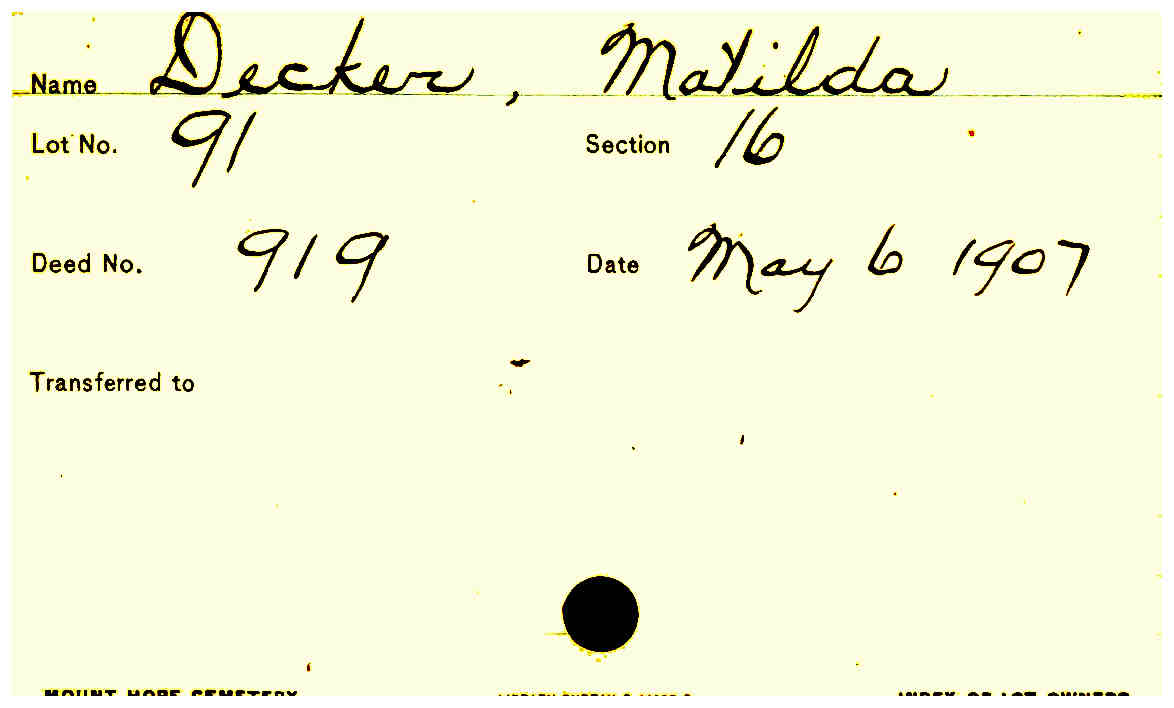 Name Decker, Matilda
Lot No. 91 Section 16
Deed No. 919 Date May 6 1907
Transferred to
MOUNT HOPE CEMETERY INDEX OF LOT OWNERS